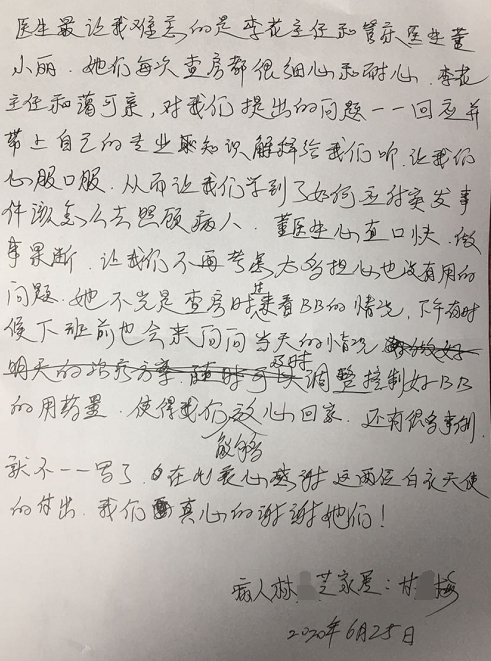 医生最让我难忘的是李花主任和管床医生董
小丽．她们每次查房都很细心和耐心．李花
主任和蔼可亲，对我们提出的问题一一回应并
带上自己的专业知识解释给我们听．让我们
心服口服．从而让我们学到了如何应付突发事
件该怎么去照顾病人．董医生心直口快．做
事果断．让我们不再考虑太多担心也没有用的
问题．她不光是查房时来看BB的情况，下午有时
候下班前也会来问问当天的情况
明天的治疗方案．随时可以及时调整控制好BB
的用药量．使得我们能够放心回家．还有很多事例．
就不一一写了．在此衷心感谢这两位白衣天使
的付出．我们真心的谢谢她们！
病人林 芝家属：甘 梅
2020年6月25日